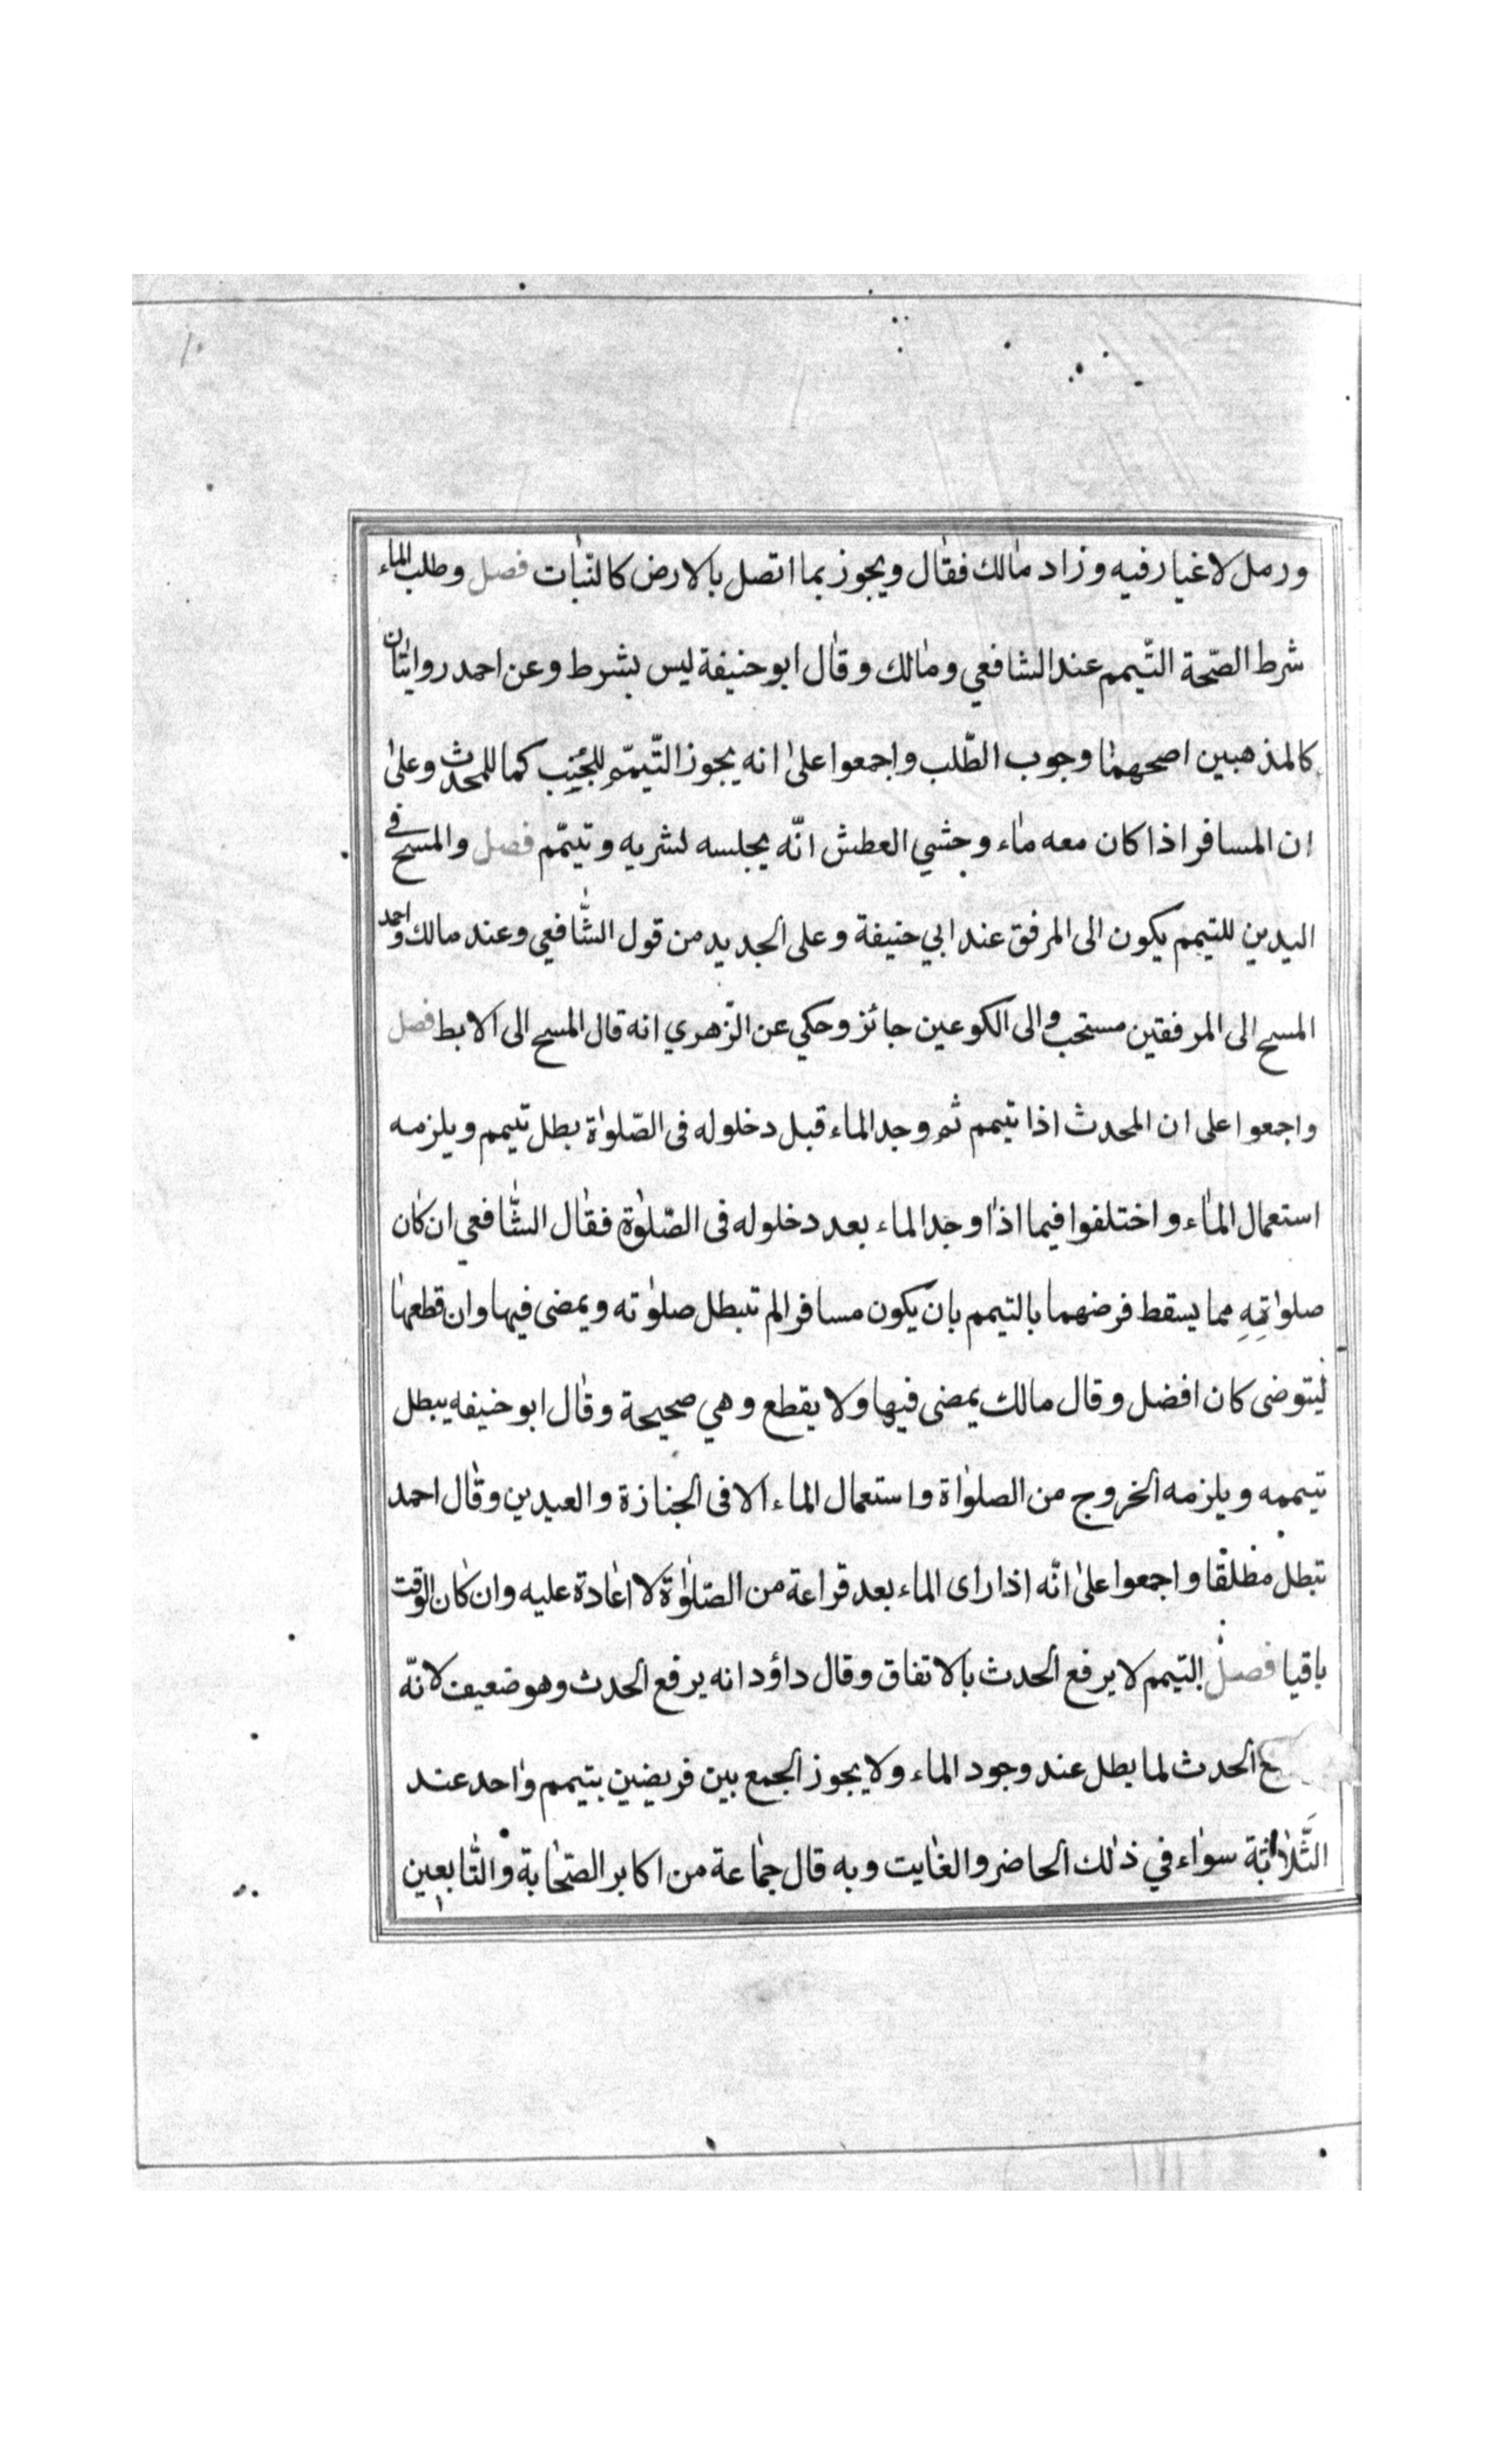 ورمل لاغيار فيه وزاد مالك فقال ويجوز بما اتصل بالارض كالنبات فصل وطلب الماء
شرط الصحة التيمم عند الشافعي ومالك وقال ابو حنيفة ليس بشرط وعن احمد روايتان
كالمذهبين اصحهما وجوب الطلب واجمعوا على انه يجوز التيمم للجنب كما للمحدث وعلى
ان المسافر اذا كان معه ماء وخشي العطش انه يجلسه لشربه وتيمم فصل والمسح في
اليدين للتيمم يكون الى المرفق عند ابي حنيفة وعلى الجديد من قول الشافعي وعند مالك واحمد
المسح الى المرفقين مستحب والى الكوعين جائز وحكي عن الزهري انه قال المسح الى الابط فصل
واجمعوا على ان المحدث اذا تيمم ثم وجد الماء قبل دخلوله فى الصلواة بطل تيمم ويلزمه
استعمال الماء واختلفوا فيما اذا وجد الماء بعد دخلوله فى الصلوة فقال الشافعي ان كان
صلواته مما يسقط فرضهما بالتيمم بان يكون مسافرا لم تبطل صلوته ويمضى فيها وان قطعها
ليتوضى كان افضل وقال مالك يمضى فيها ولا يقطع وهي صحيحة وقال ابو حنيفه يبطل
تيممه ويلزمه الخروج من الصلواة واستعمال الماء الا فى الجنازة والعيدين وقال احمد
تبطل مطلقا واجمعوا على انه اذا راى الماء بعد قراعة من الصلواة لا اعادة عليه وان كان الوقت
باقيا فصل التيمم لا يرفع الحدث بالاتفاق وقال داؤد انه يرفع الحدث وهو ضعيف لانه
ع الحدث لما بطل عند وجود الماء ولا يجوز الجمع بين فريضين بتيمم واحد عند
الثلاثة سواء في ذلك الحاضر والغايت وبه قال جماعة من اكابر الصحابة والتابعين